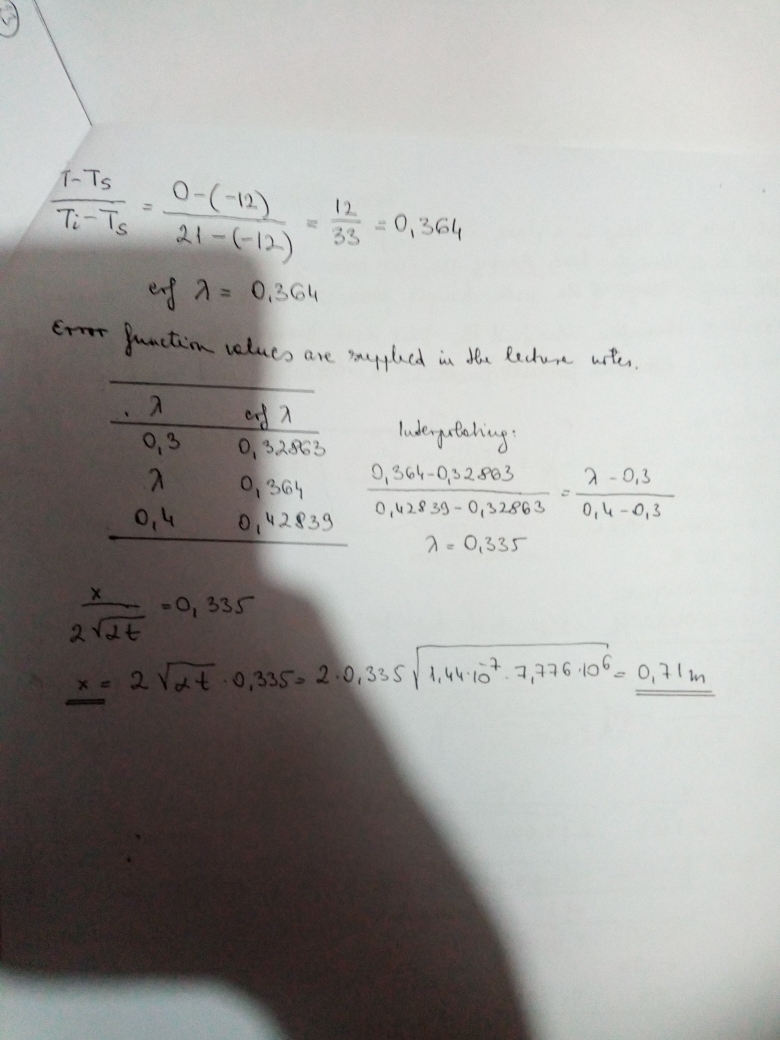 T-Ts / Ti-Ts = 0-(-12) / 21-(-12) = 12/33 = 0,364
erf λ = 0,364
Error function values are supplied in the lecture notes.
λ erf λ
0,3 0,32863
λ 0,364
0,4 0,42839
Interpolating:
0,364-0,32863 / 0,42839-0,32863 = λ-0,3 / 0,4-0,3
λ = 0,335
x / 2√αt = 0,335
x = 2√αt · 0,335 = 2·0,335 √1,44·10⁻⁷·7,776·10⁶ = 0,71m